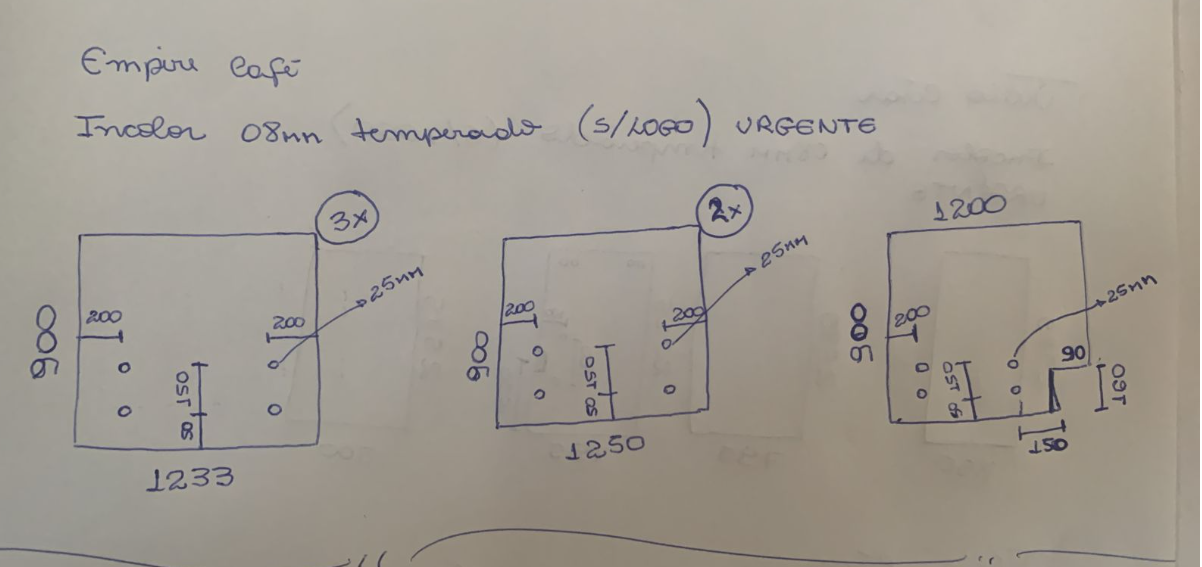 Empire Café
Incolor 08mm temperado (S/LOGO) URGENTE
3x
900
200
200
25mm
150
50
1233
2x
900
200
200
25mm
150
50
1250
1200
900
200
25mm
150
50
90
160
150